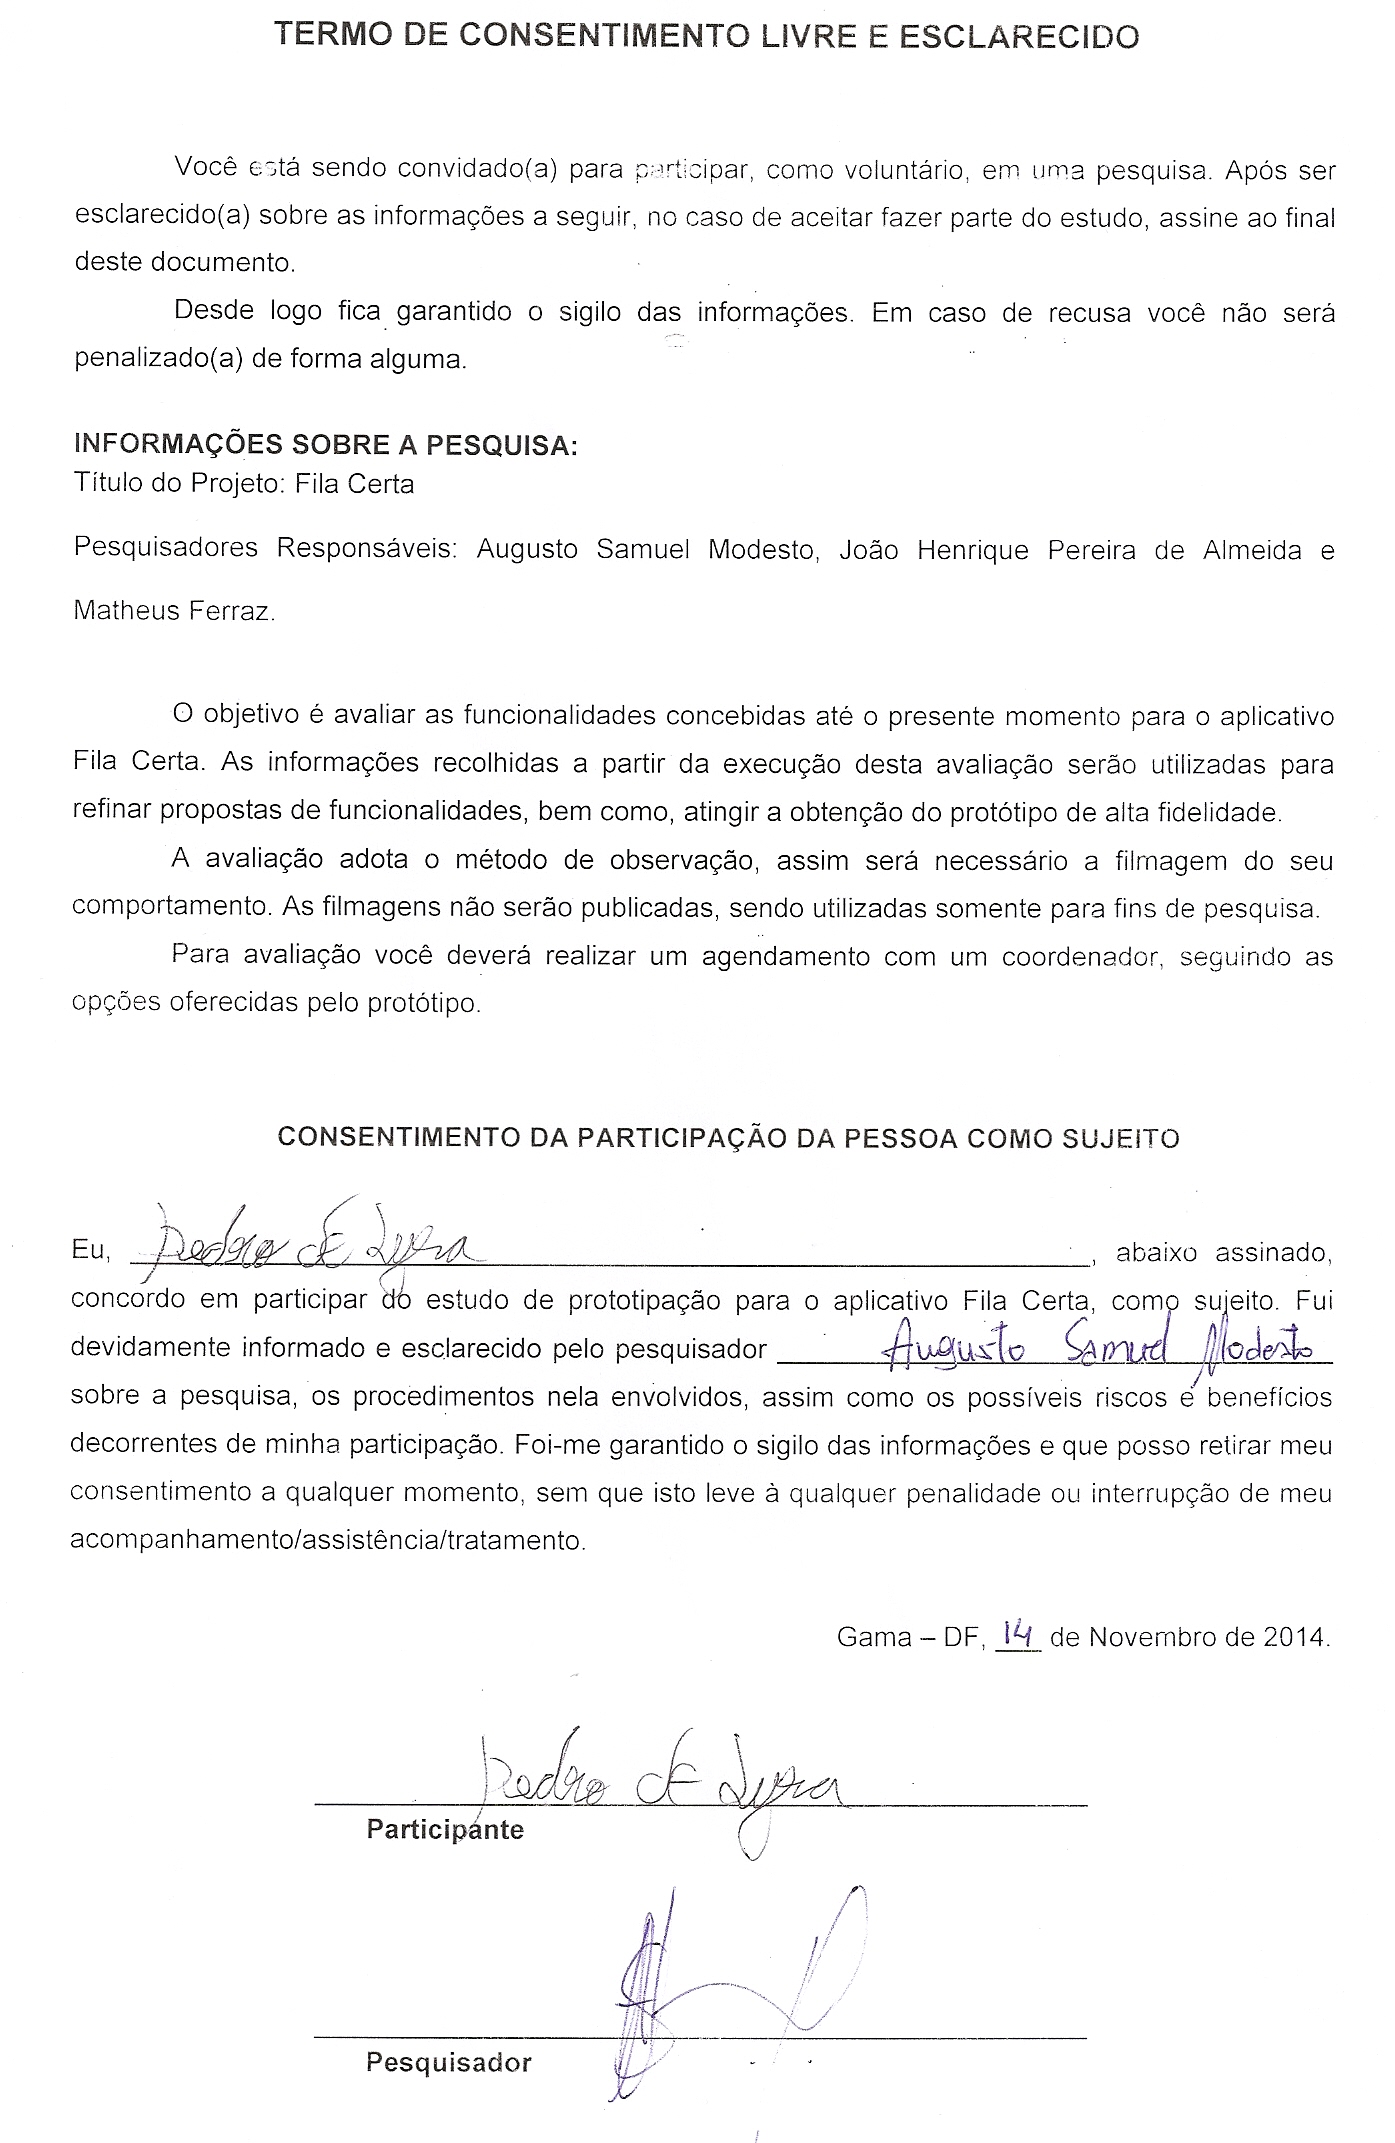 TERMO DE CONSENTIMENTO LIVRE E ESCLARECIDO
Você está sendo convidado(a) para participar, como voluntário, em uma pesquisa. Após ser
esclarecido(a) sobre as informações a seguir, no caso de aceitar fazer parte do estudo, assine ao final
deste documento.
Desde logo fica garantido o sigilo das informações. Em caso de recusa você não será
penalizado(a) de forma alguma.
INFORMAÇÕES SOBRE A PESQUISA:
Título do Projeto: Fila Certa
Pesquisadores Responsáveis: Augusto Samuel Modesto, João Henrique Pereira de Almeida e
Matheus Ferraz.
O objetivo é avaliar as funcionalidades concebidas até o presente momento para o aplicativo
Fila Certa. As informações recolhidas a partir da execução desta avaliação serão utilizadas para
refinar propostas de funcionalidades, bem como, atingir a obtenção do protótipo de alta fidelidade.
A avaliação adota o método de observação, assim será necessário a filmagem do seu
comportamento. As filmagens não serão publicadas, sendo utilizadas somente para fins de pesquisa.
Para avaliação você deverá realizar um agendamento com um coordenador, seguindo as
opções oferecidas pelo protótipo.
CONSENTIMENTO DA PARTICIPAÇÃO DA PESSOA COMO SUJEITO
Eu, Pedro de Lyra, abaixo assinado,
concordo em participar do estudo de prototipação para o aplicativo Fila Certa, como sujeito. Fui
devidamente informado e esclarecido pelo pesquisador Augusto Samuel Modesto
sobre a pesquisa, os procedimentos nela envolvidos, assim como os possíveis riscos e benefícios
decorrentes de minha participação. Foi-me garantido o sigilo das informações e que posso retirar meu
consentimento a qualquer momento, sem que isto leve à qualquer penalidade ou interrupção de meu
acompanhamento/assistência/tratamento.
Gama – DF, 14 de Novembro de 2014.
Pedro de Lyra
Participante
Pesquisador